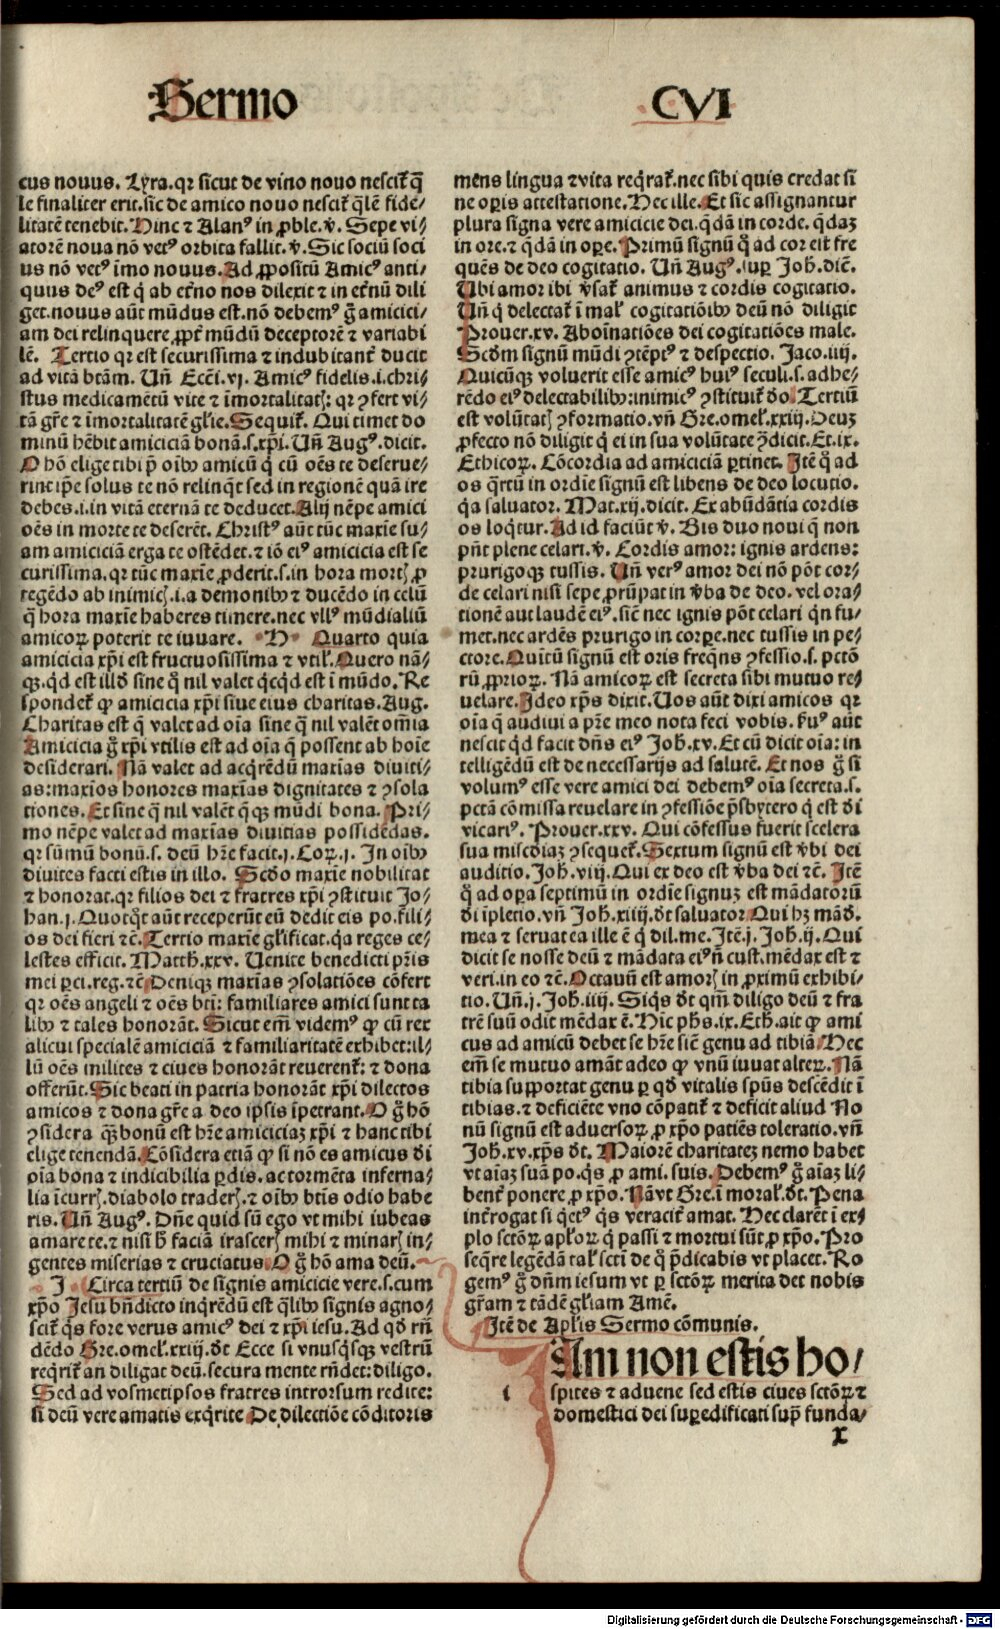 Sermo CVI
cus nouus. Lyra.qr sicut de vino nouo nescit̃ q̃
le finaliter erit.sic de amico nouo nescit̃ q̃lẽ fide⸗
litatẽ tenebit. Hinc ⁊ Alanꝰ in ꝓble.v̾. Sepe vi⸗
atorẽ noua nõ vetꝰ orbita fallit.v̾. Sic sociũ soci
us nõ vetꝰ ĩmo nouus. Ad ꝓpositũ Amicꝰ anti⸗
quus deꝰ est q̇ ab et̃no nos dilexit ⁊ in et̃nũ dili
get.nouus aũt mũdus est.nõ debemꝰ g̃ amicici⸗
am dei relinquere ꝓpt̃ mũdũ deceptorẽ ⁊ variabi
lẽ. Tertio qr est securissima ⁊ indubitant̃ ducit
ad vitã btãm. Uñ Ecc̃i.vj. Amicꝰ fidelis.i.chri⸗
stus medicamẽtũ vite ⁊ ĩmortalitatꝭ: qr ꝯfert vi⸗
tã gr̃e ⁊ ĩmortalitatẽ gl̃ie. Sequit̃. Qui timet do
minũ hẽbit amiciciã bonã.s.xp̃i. Uñ Augꝰ.dicit.
O hõ elige tibi p̃ oĩbꝫ amicũ q̇ cũ oẽs te deserue⸗
rint ip̃e solus te nõ relinq̃t sed in regionẽ quã ire
debes.i.in vitã eternã te deducet. Alij nẽpe amici
oẽs in morte te deserẽt. Christꝰ aũt tũc maxĩe su⸗
am amiciciã erga te ostẽdet.⁊ iõ eiꝰ amicicia est se
curissima.qr tũc maxĩe ꝓderit.s.in hora mortꝭ ꝓ
tegẽdo ab inimicꝭ.i.a demonibꝫ ⁊ ducẽdo in celũ
q̃ hora maxĩe haberes timere.nec vllꝰ mũdialiũ
amicoꝝ poterit te iuuare. H Quarto quia
amicicia xp̃i est fructuosissima ⁊ vtil̃. Quero nã⸗
qꝫ.qd̾ est illd̾ sine q̃ nil valet q̇cq̇d est ĩ mũdo. Re
spondet̃ ꝙ amicicia xp̃i siue eius charitas. Aug.
Charitas est q̃ valet ad oĩa sine q̃ nil valẽt om̃ia
Amicicia g̃ xp̃i vtilis est ad oĩa q̃ possent ab hoĩe
desiderari. Nã valet ad acq̇rẽdũ maxĩas diuiti⸗
as:maxĩos honores maxĩas dignitates ⁊ ꝯsola
tiones. Et sine q̃ nil valẽt q̃qꝫ mũdi bona. Pri⸗
mo nẽpe valet ad maxĩas diuitias possidẽdas.
qr sũmũ bonũ.s. deũ hr̃e facit.j.Coꝝ.j. In oĩbꝫ
diuites facti estis in illo. Scd̾o maxĩe nobilitat
⁊ honorat.qr filios dei ⁊ fratres xp̃i ꝯstituit Jo⸗
han.j.Quotq̇t aũt receperũt eũ dedit eis po.fili⸗
os dei fieri ⁊c̃. Tertio maxĩe gl̃ificat.q̃a reges ce⸗
lestes efficit. Matth.xxv. Uenite benedicti pr̃is
mei ꝑci.reg.⁊c̃ Deniqꝫ maxĩas ꝯsolatiões cõfert
qr oẽs angeli ⁊ oẽs bt̃i: familiares amici sunt ta
libꝫ ⁊ tales honorãt. Sicut em̃ videmꝰ ꝙ cũ rex
alicui specialẽ amiciciã ⁊ familiaritatẽ exhibet:il⸗
lũ oẽs milites ⁊ ciues honorãt reuerent̃: ⁊ dona
offerũt. Sic beati in patria honorãt xp̃i dilectos
amicos ⁊ dona gr̃e a deo ip̃sis ĩpetrant. O g̃ hõ
ꝯsidera q̃ꝫ bonũ est hr̃e amiciciaꝫ xp̃i ⁊ hanc tibi
elige tenendã. Cõsidera etiã ꝙ si nõ es amicus d̾i
oĩa bona ⁊ indicibilia ꝑdis.ac tormẽta inferna⸗
lia ĩcurrꝭ.diabolo traderꝭ.⁊ oĩbꝫ btĩs odio habe
ris. Uñ Augꝰ. Dñe quid sũ ego vt mihi iubeas
amare te.⁊ nisi h̾ faciã irascerꝭ mihi ⁊ minarꝭ in⸗
gentes miserias ⁊ cruciatus. O g̃ hõ ama deũ.
J Circa tertiũ de signis amicicie vere.s.cum
xp̃o Jesu bñdicto inq̇rẽdũ est q̃libꝫ signis agno⸗
scit̃ q̇s fore verus amicꝰ dei ⁊ xp̃i iesu. Ad qd̾ rñ
dẽdo Gre.omel̃.xxiij.d̾t Ecce si vnusq̇sqꝫ vestrũ
req̇rit̃ an diligat deũ.secura mente rñdet: diligo.
Sed ad vosmetipsos fratres introrsum redite:
si deũ vere amatis exq̇rite De dilectiõe cõditoris
mens lingua ⁊ vita req̇rat̃.nec sibi quis credat si
ne oꝑis attestatione. Hec ille. Et sic assignantur
plura signa vere amicicie dei.q̃dã in corde.q̃daꝫ
in ore.⁊ q̃dã in oꝑe. Primũ signũ q̃ ad cor est fre
quẽs de deo cogitatio. Uñ Augꝰ.suꝑ Joh̃.dic̃.
Ubi amor ibi v̾sat̃ animus ⁊ cordis cogitatio.
Uñ q̇ delectat̃ ĩ mal̃ cogitatiõibꝫ deũ nõ diligit
Prouer.xv. Aboĩnatiões dei cogitatiões male.
Scd̾m signũ mũdi ꝯtẽptꝰ ⁊ despectio. Jaco.iiij.
Quicũqꝫ voluerit esse amicꝰ huiꝰ seculi.s.adhe⸗
rẽdo eiꝰ delectabilibꝫ:inimicꝰ ꝯstituit̃ d̾o. Tertiũ
est volũtatꝭ ꝯformatio.vñ Gre.omel̃.xxiij.Deus
ꝓfecto nõ diligit q̇ ei in sua volũtate ꝯ̃dicit.Et.ix.
Ethicoꝝ. Cõcordia ad amiciciã ꝑtinet. Jtẽ q̃ ad
os q̃rtũ in ordĩe signũ est libens de deo locutio.
q̃a saluator. Mat.xij.dicit. Ex abũdãtia cordis
os loq̃tur. Ad id faciũt v̾. Bis duo noui q̃ non
pñt plene celari.v̾. Cordis amor: ignis ardens:
prurigoqꝫ tussis. Uñ verꝰ amor dei nõ põt cor⸗
de celari nisi sepe ꝓrũpat in v̾ba de deo. vel ora⸗
tionẽ aut laudẽ eiꝰ.sic̃ nec ignis põt celari q̇n fu⸗
met.nec ardẽs prurigo in corꝑe.nec tussis in pe⸗
ctore. Quĩtũ signũ est oris freq̃ns ꝯfessio.s. pctõ
rũ ꝓprioꝝ. Nã amicoꝝ est secreta sibi mutuo re⸗
uelare. Jdeo xp̃s dixit. Uos aũt dixi amicos qr
oĩa q̃ audiui a pr̃e meo nota feci vobis. s̾uꝰ aũt
nescit q̇d facit dñs eiꝰ Joh̃.xv. Et cũ dicit oĩa: in
telligẽdũ est de necessarijs ad salutẽ. Et nos g̃ si
volumꝰ esse vere amici dei debemꝰ oĩa secreta.s.
pctã cõmissa reuelare in ꝯfessiõe p̃sbytero q̇ est d̾i
vicariꝰ. Prouer.xxv. Qui cõfessus fuerit scelera
sua miscdiaꝫ ꝯsequet̃. Sextum signũ est v̾bi dei
auditio. Joh̃.viij. Qui ex deo est v̾ba dei ⁊c̃. Jtẽ
q̃ ad oꝑa septimũ in ordĩe signuꝫ est mãdatorũ
d̾i ĩpletio.vñ Joh̃.xiiij.d̾t saluator Qui hꝫ mãd̾.
mea ⁊ seruat ea ille ẽ q̇ dil.me. Jtẽ.j. Joh̃.ij. Qui
dicit se nosse deũ ⁊ mãdata eiꝰ ñ cust.mẽdax est ⁊
veri.in eo ⁊c̃. Octauũ est amorꝭ in ꝓximũ exhibi⸗
tio. Uñ.j. Joh̃.iiij. Siq̇s d̾t qm̃ diligo deũ ⁊ fra
trẽ suũ odit mẽdax ẽ. Hic ph̃s.ix.Eth.ait ꝙ ami
cus ad amicũ debet se hr̃e sic̃ genu ad tibiã Hec
em̃ se mutuo amãt adeo ꝙ vnũ iuuat alteꝝ. Nã
tibia supportat genu ꝑ qd̾ vitalis sp̃us descẽdit ĩ
tibias.⁊ deficiẽte vno cõpatit̃ ⁊ deficit aliud No
nũ signũ est aduersoꝝ ꝓ xp̃o patiẽs toleratio.vñ
Joh̃.xv.xp̃s d̾t. Maiorẽ charitateꝫ nemo habet
vt aĩaꝫ suã po.q̇s ꝓ ami.suis. Debemꝰ g̃ aĩaꝫ li⸗
bent̃ ponere ꝓ xp̃o. Nã vt Gre.ĩ moral̃.d̾t. Pena
int̃rogat si q̇etꝰ q̇s veracit̃ amat. Hec clarẽt ĩ ex⸗
plo sctõꝝ apl̃oꝝ q̇ passi ⁊ mortui sũt ꝓ xp̃o. Pro
seq̃re legẽdã tal̃ scti de q̃ p̃dicabis vt placet. Ro
gemꝰ g̃ dñm iesum vt ꝑ sctõꝝ merita det nobis
gr̃am ⁊ tãdẽ gl̃iam Amẽ.
Jtẽ de Apl̃is Sermo cõmunis.
Am non estis ho⸗
i spites ⁊ aduene sed estis ciues sctõꝝ ⁊
domestici dei suꝑedificati sup̃ funda⸗
x
Digitalisierung gefördert durch die Deutsche Forschungsgemeinschaft - DFG